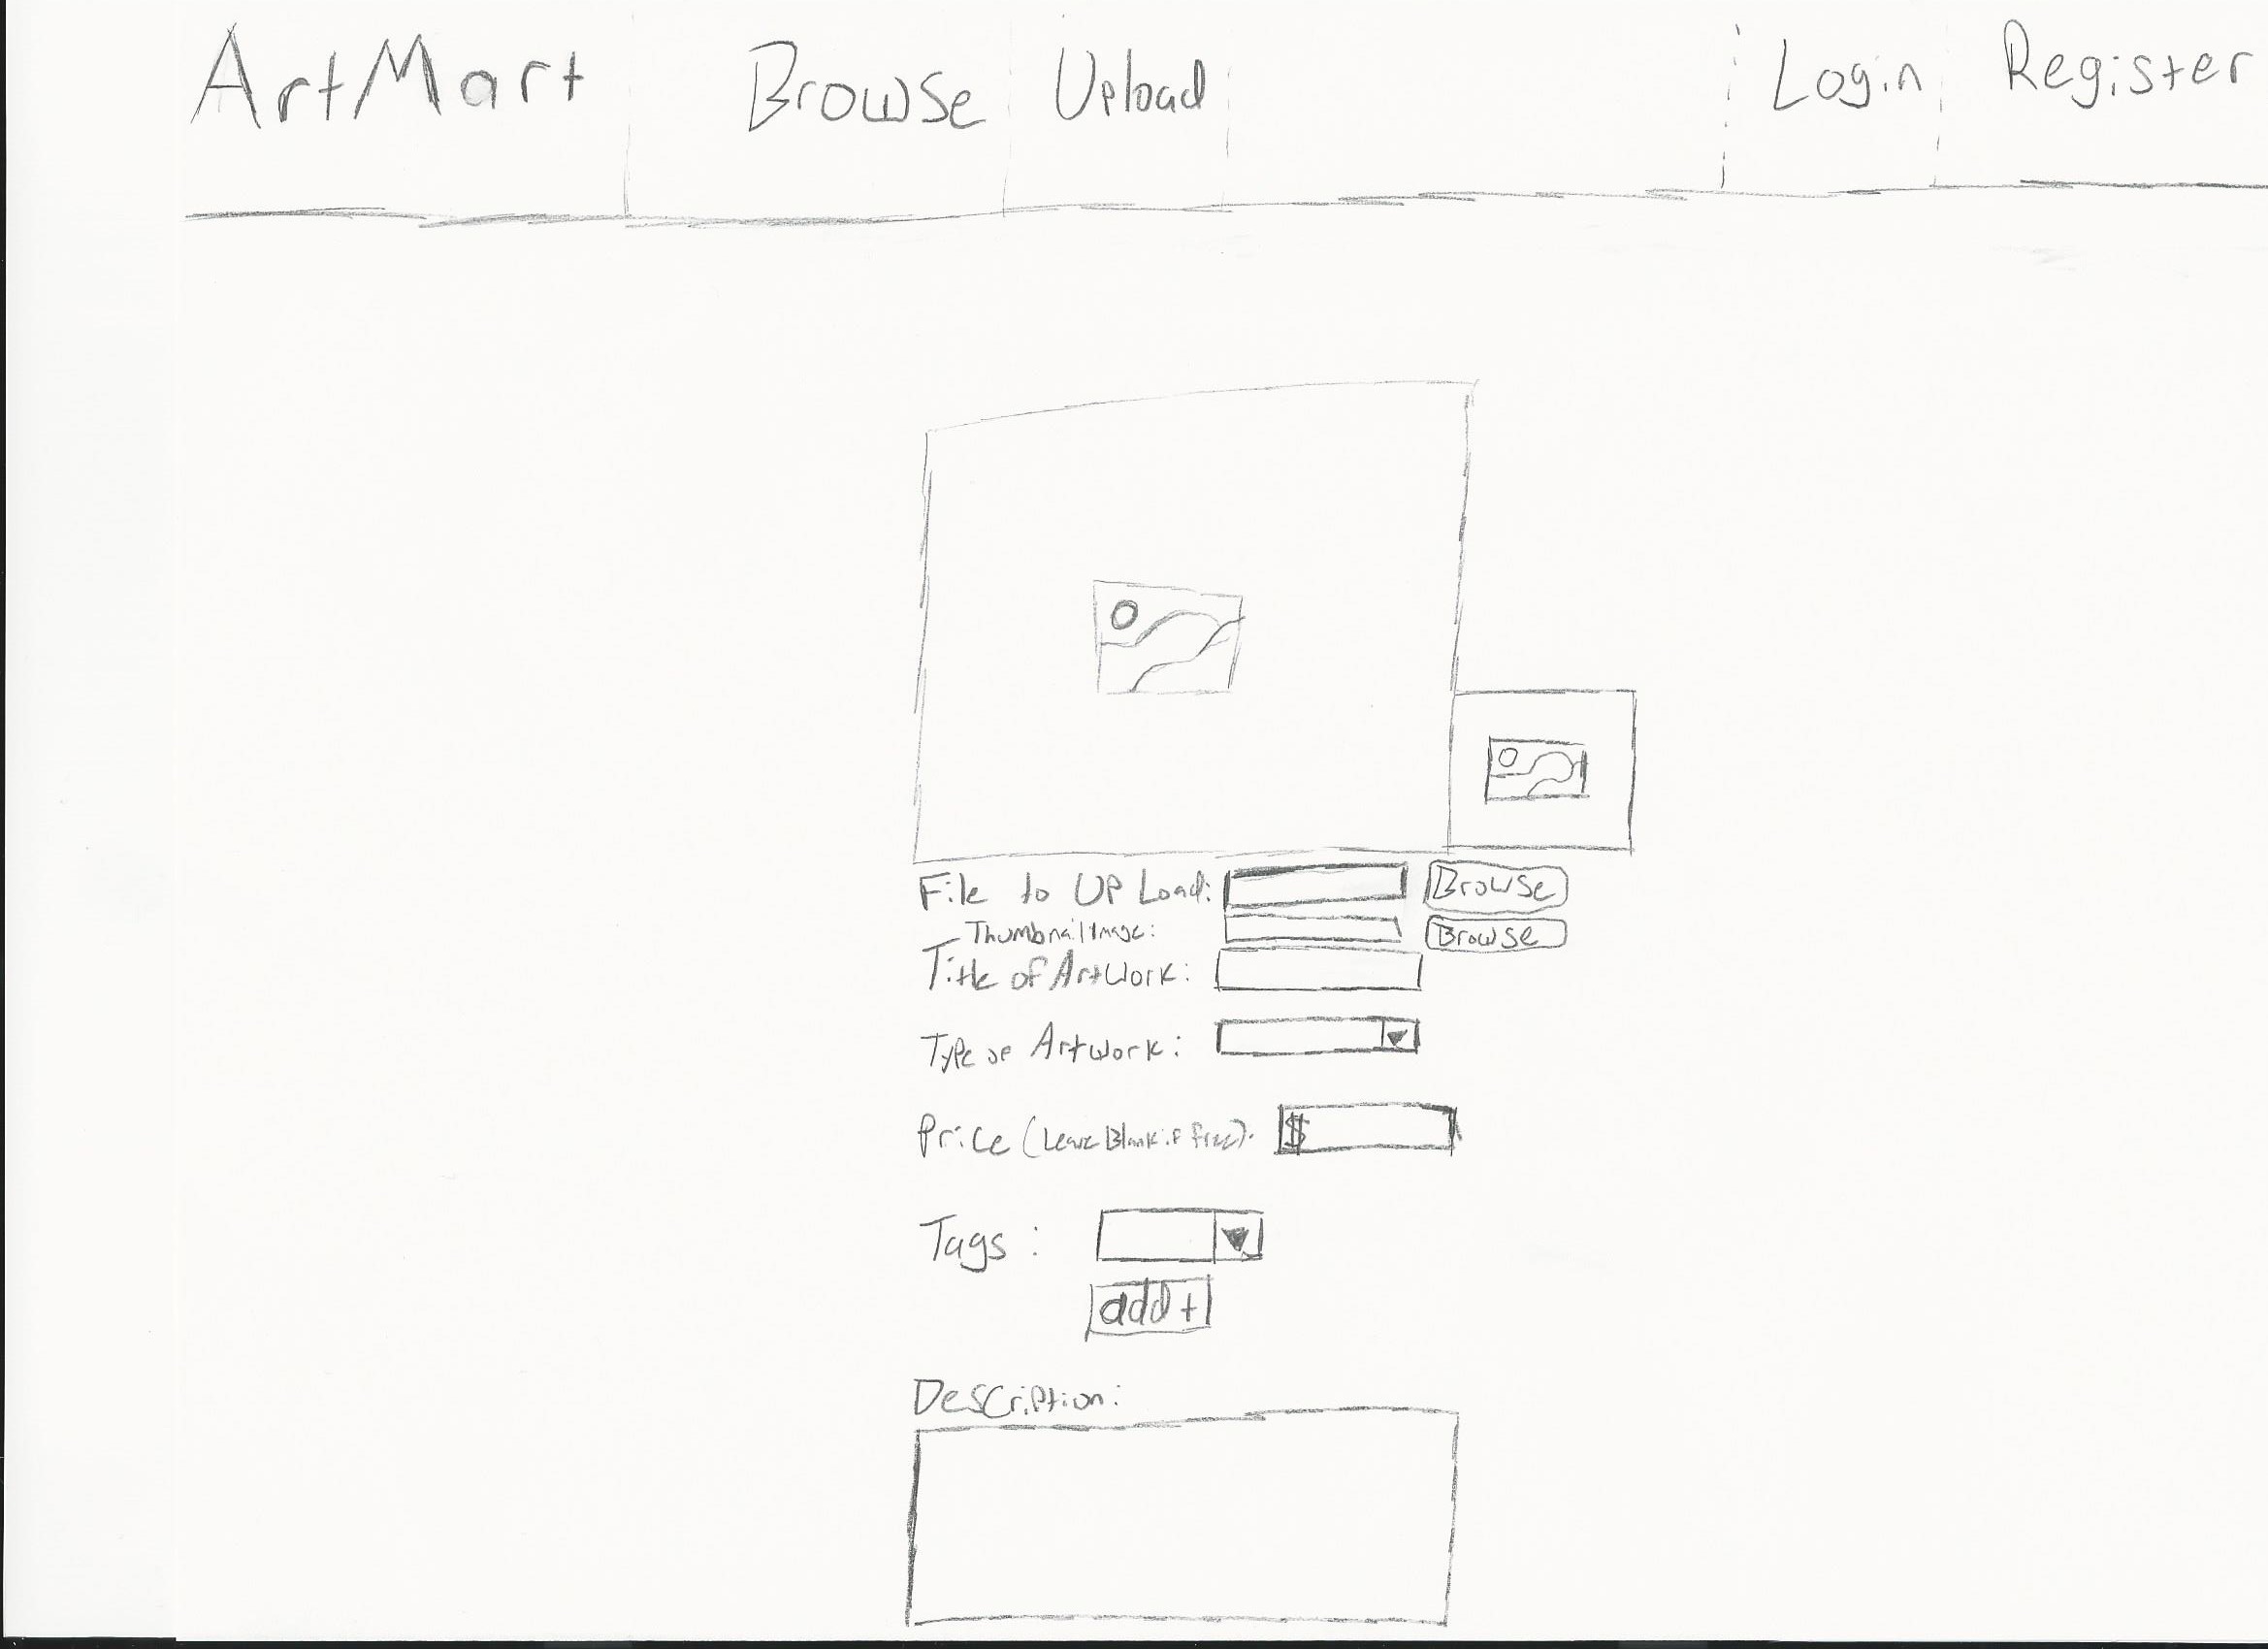 ArtMart Browse Upload Login Register
File to UPLoad: Browse
Thumbnail Image: Browse
Title of ArtWork:
Type of Artwork:
Price (Leave Blank if free):
$
Tags:
add+
Description: